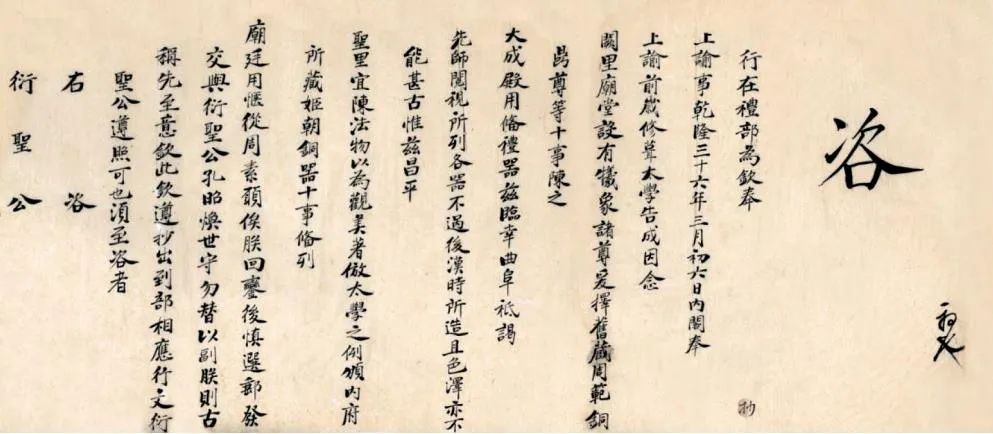 咨
行在禮部為欽奉
上諭事乾隆三十六年三月初六日內閣奉
上諭前歲修葺太學告成因念
闕里廟堂設有犧象諸尊爰擇舊藏周範銅
尊等十事陳之
大成殿用備禮器茲臨幸曲阜祗謁
先師閱視所列各器不過後漢時所造且色澤亦不
能甚古惟茲昌平
聖里宜陳法物以為觀美著倣太學之例頒內府
所藏姬朝銅器十事備列
廟廷用愜從周素願俟朕回鑾後慎選郵發
交與衍聖公孔昭煥世守勿替以副朕則古
稱先至意欽此欽遵抄出到部相應行文衍
聖公遵照可也湏至咨者
右咨
衍聖公